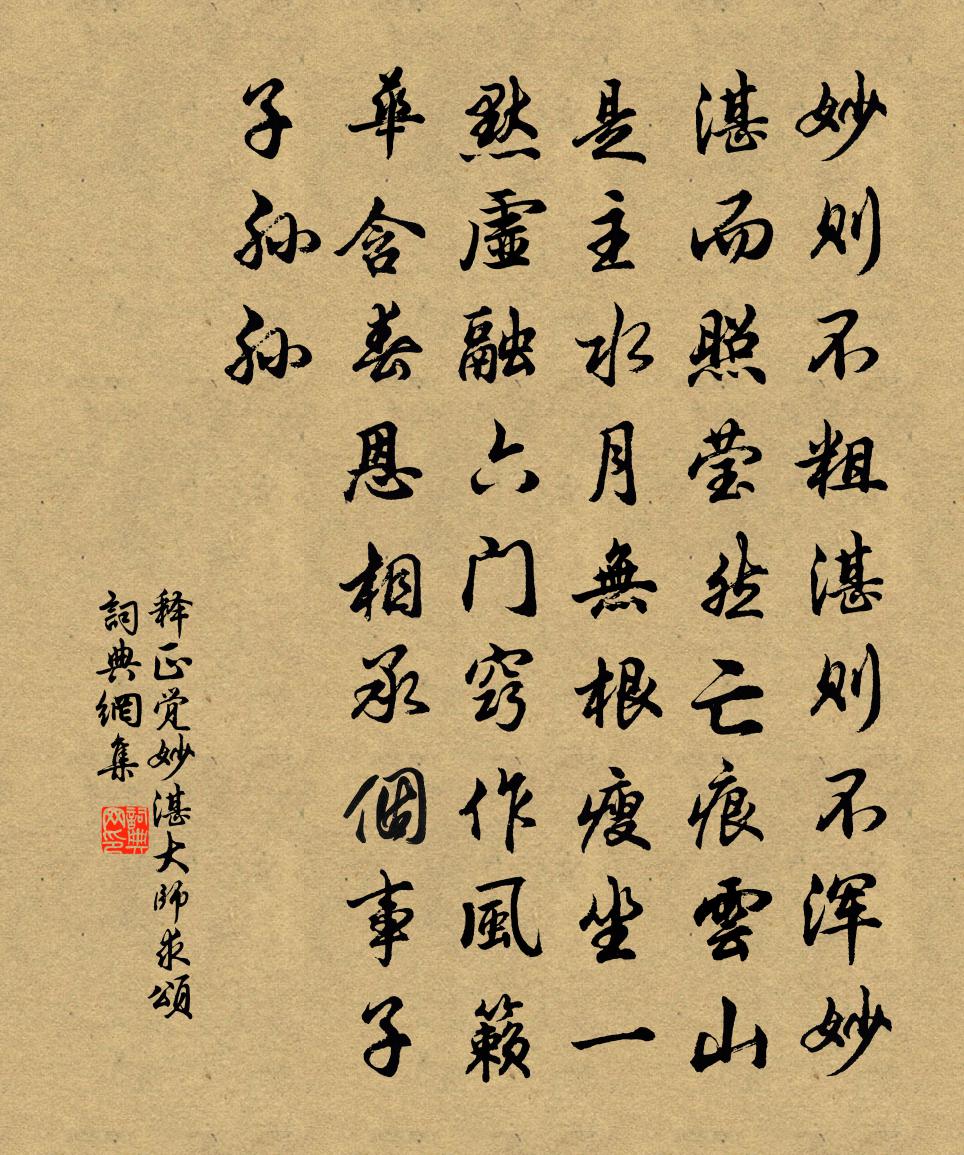 妙则不粗湛则不浑妙
湛而照莹然亡痕雲山
是主水月無根瘦坐一
默虚融六门窍作風籁
華含春恩相承個事子
子孙孙
释正觉妙湛大師求頌
詞典網集
詞典网印